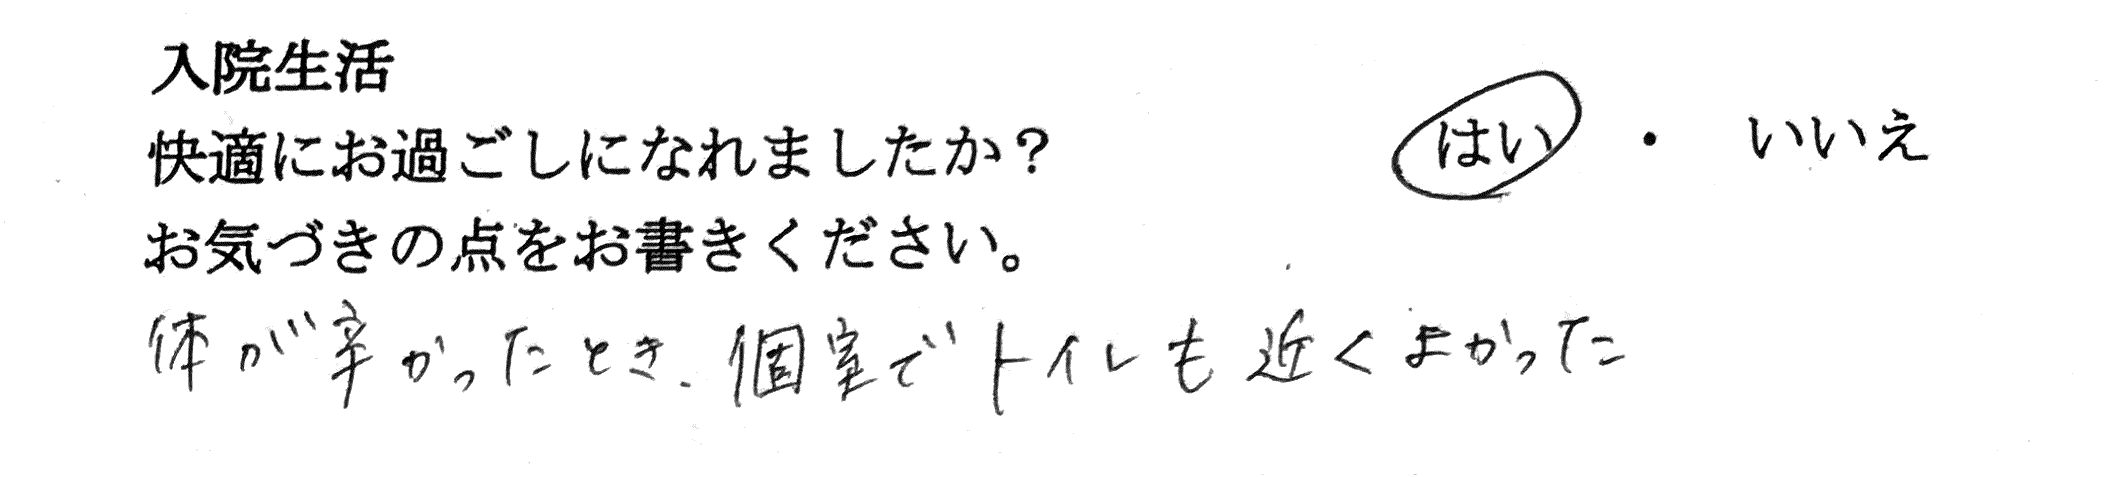 入院生活
快適にお過ごしになれましたか？ はい ・ いいえ
お気づきの点をお書きください。
体が辛かったとき、個室でトイレも近くよかった